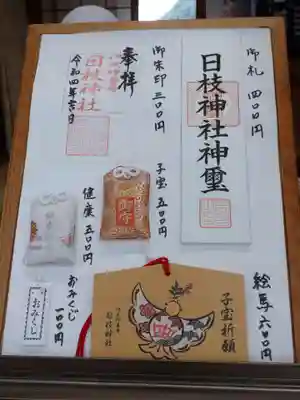 御札 四〇〇円
日枝神社神璽
御朱印 三〇〇円
奉拝
日枝神社
令和四年吉日
子宝 五〇〇円
御守
健康 五〇〇円
おみくじ 一〇〇円
おみくじ
絵馬 六〇〇円
子宝祈願
日枝神社